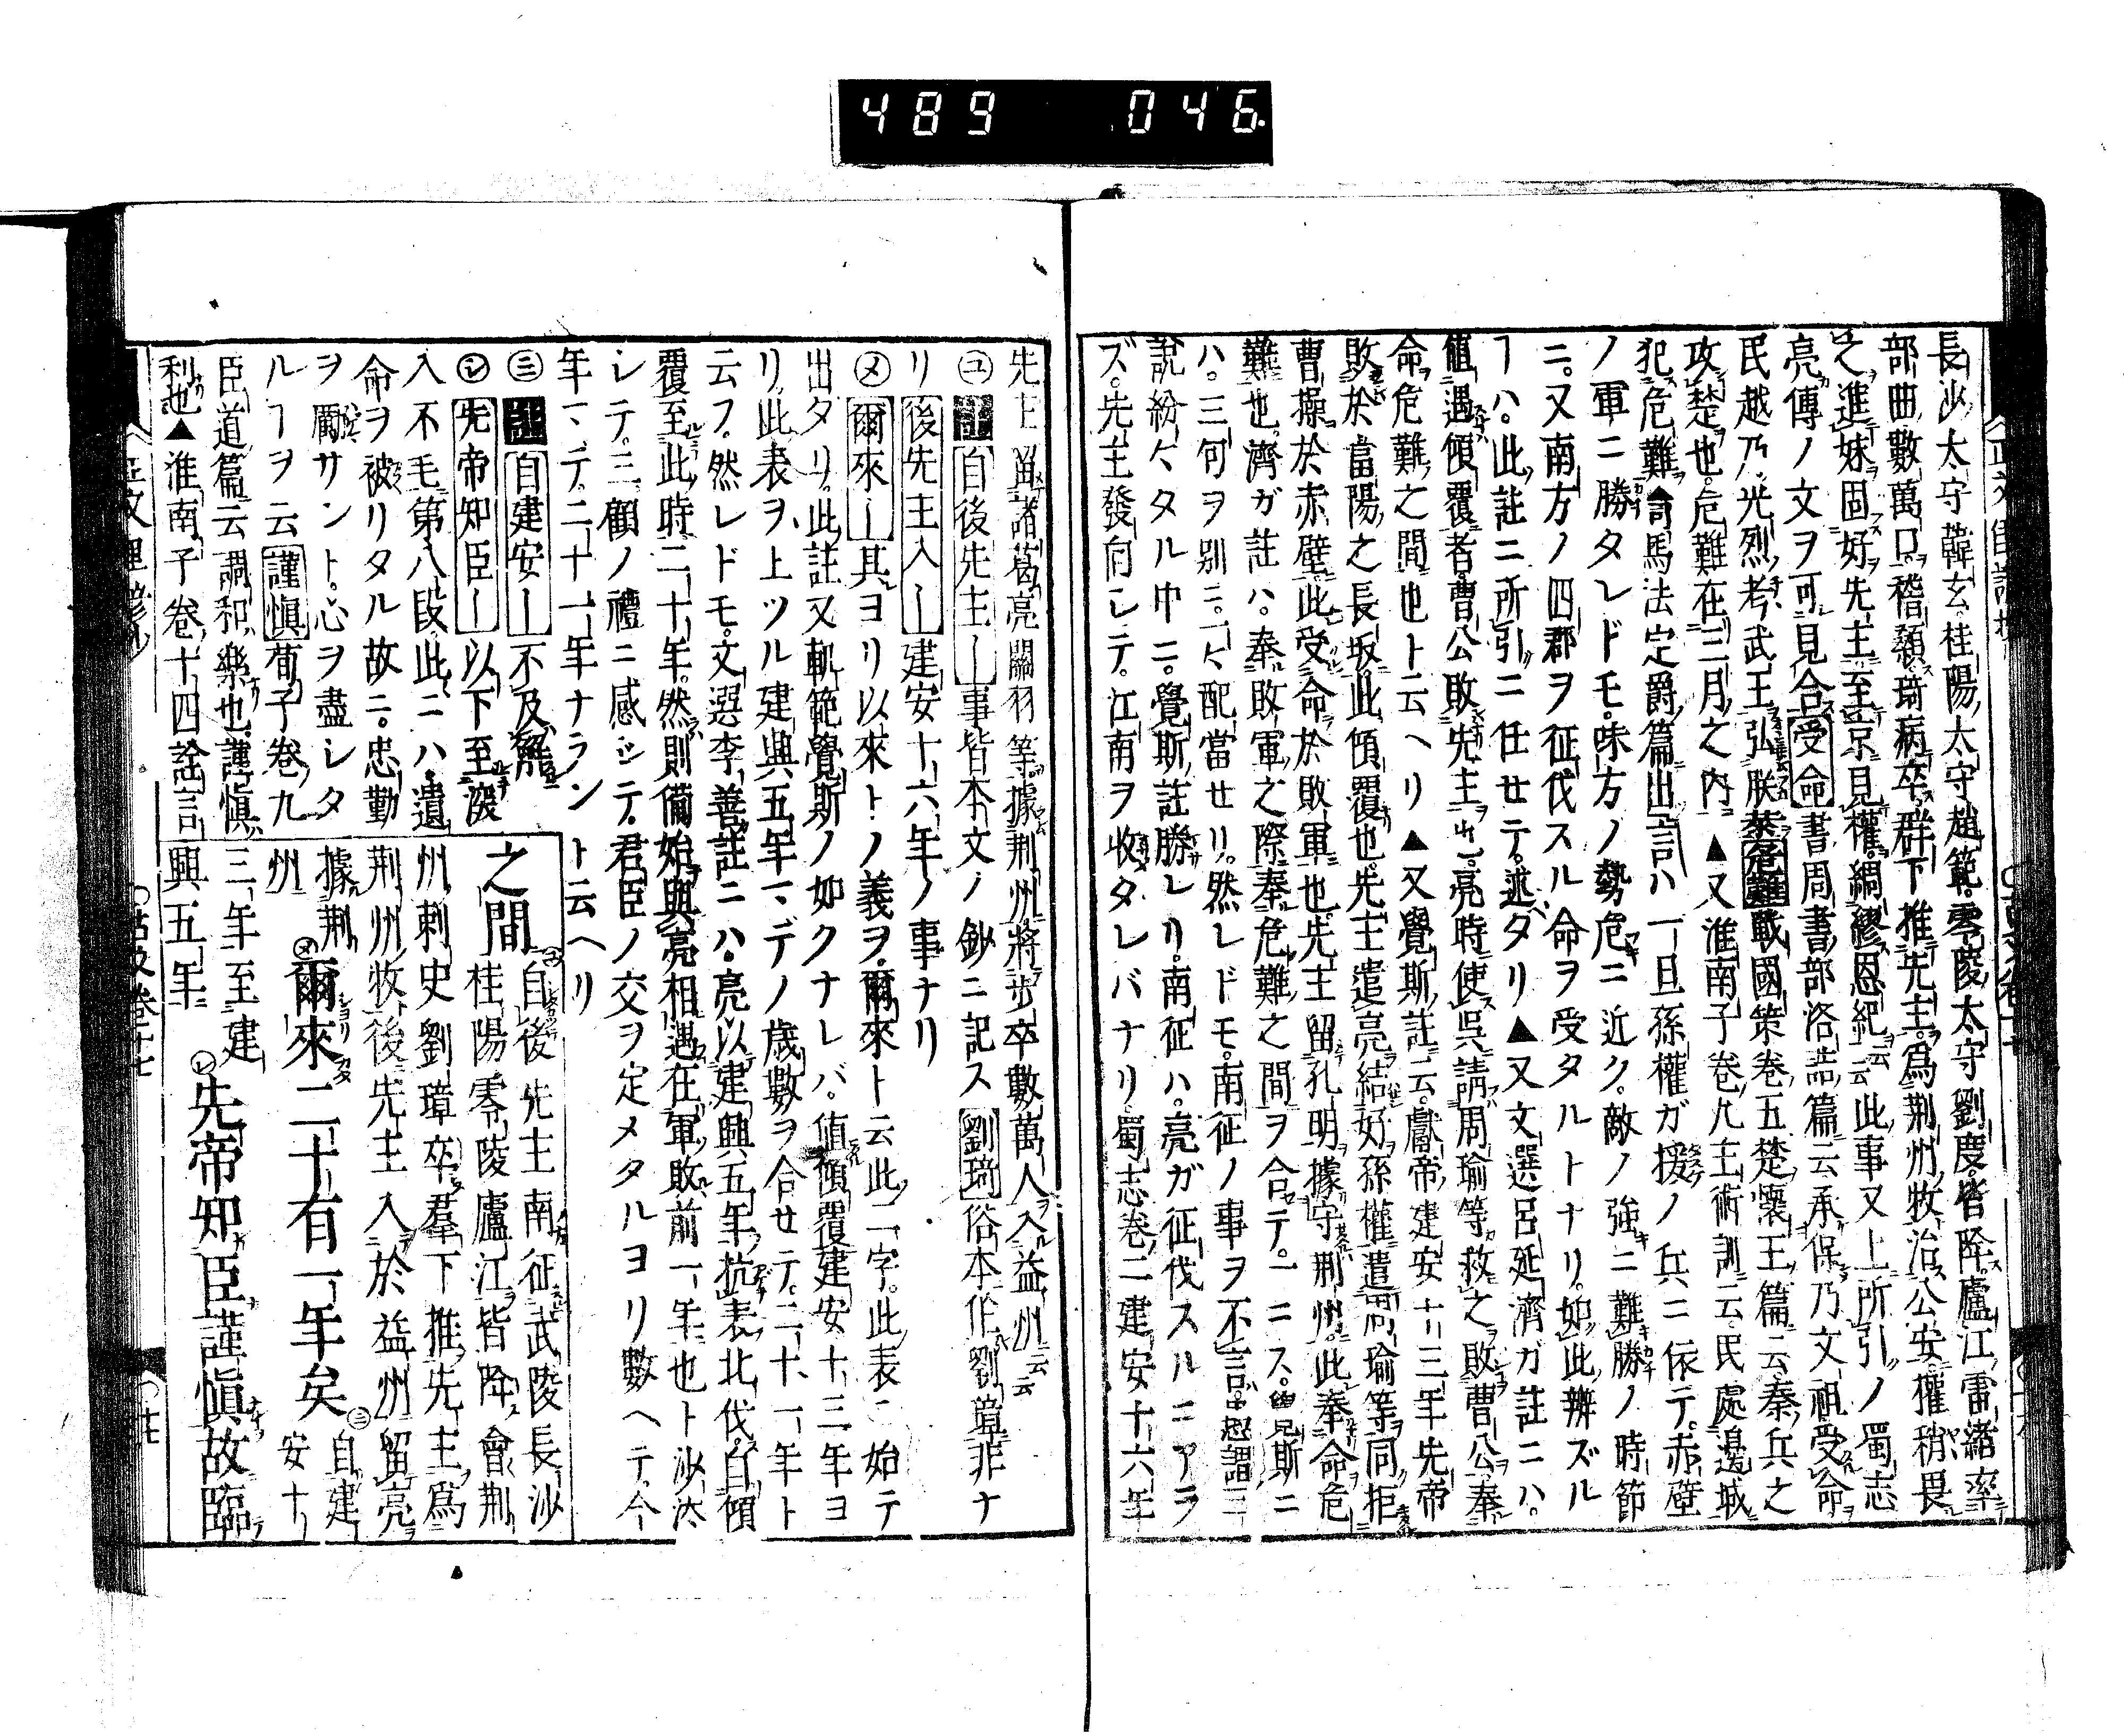 489 046
長沙太守韓玄桂陽太守趙範零陵太守劉度皆降廬江雷緒率
部曲數萬口稽顙琦病卒群下推先主爲荆州牧治公安權稍畏
之進妹固好先主至京見權綢繆恩紀云云此事又上所引ノ蜀志
亮傳ノ文ヲ可見合受命書周書部洛誥篇云承保乃文祖受命
民越乃光烈考武王弘朕恭危難戰國策卷五楚懷王篇云秦兵之
攻楚也危難在三月之内▲又淮南子卷九主術訓云民處邊城
犯危難▲司馬法定爵篇出言ハ一旦孫權ガ援ノ兵ニ依テ赤壁
ノ軍ニ勝タレドモ味方ノ勢危ニ近ク敵ノ強ニ難勝ノ時節
ニ又南方ノ四郡ヲ征伐スル命ヲ受タルトナリ如此辨ズル
ヿハ此註ニ所引ニ任セテ述タリ▲又文選呂延濟ガ註ニハ
値遇傾覆者曹公敗先主也亮時使吳請周瑜等救之敗曹公奉
命危難之間也ト云ヘリ▲又覺斯註云獻帝建安十三年先帝
敗於當陽之長坂此傾覆也先主遣亮結好孫權遣周瑜等同拒
曹操於赤壁此受命於敗軍也先主留孔明據守荆州此奉命危
難也濟ガ註ハ奉敗軍之際奉危難之間ヲ合テ一ニス斯ニ
ハ三句ヲ別三ニ配當セリ然レドモ南征ノ事ヲ不言
說紛々タル中ニ覺斯註勝レリ南征ハ亮ガ征伐スルニアラ
ズ先主發向シテ江南ヲ收タレバナリ蜀志卷二建安十六年
先主留諸葛亮關羽等據荆州將步卒數萬人入益州云云
ユ 註 自後先主ー事皆本文ノ鈔ニ記ス劉琦俗本作劉璋非ナ
リ後先主入ー建安十六年ノ事ナリ
メ 爾來ー其ヨリ以來トノ義ヲ爾來ト云此二字此表ニ始テ
出タリ此註又軌範覺斯ノ如クナレバ値傾覆建安十三年ヨ
リ此表ヲ上ツル建興五年マデノ歲數ヲ合セテ二十一年ト
云フ然レドモ文選李善註ニハ亮以建興五年抗表北伐自傾
覆至此時二十年然則備始與亮相遇在軍敗前一年也ト沙汰
シテ三顧ノ禮ニ感シテ君臣ノ交ヲ定メタルヨリ數ヘテ今
年マデ二十一年ナラント云ヘリ
ミ 註 自建安ー不及解
シ 先帝知臣ー以下至深
入不毛第八段此ニハ遺
命ヲ被リタル故ニ忠勤
ヲ厲サント心ヲ盡シタ
ルヿヲ云謹愼荀子卷九
臣道篇云調和樂也謹愼
利也▲淮南子卷十四詮言
之間 自後先主南征武陵長沙
桂陽零陵廬江皆降會荆
州刺史劉璋卒羣下推先主爲
荆州牧後先主入於益州留亮
據荆州 爾來二十有一年矣 自建安十
三年至建興五年 先帝知臣謹愼故臨